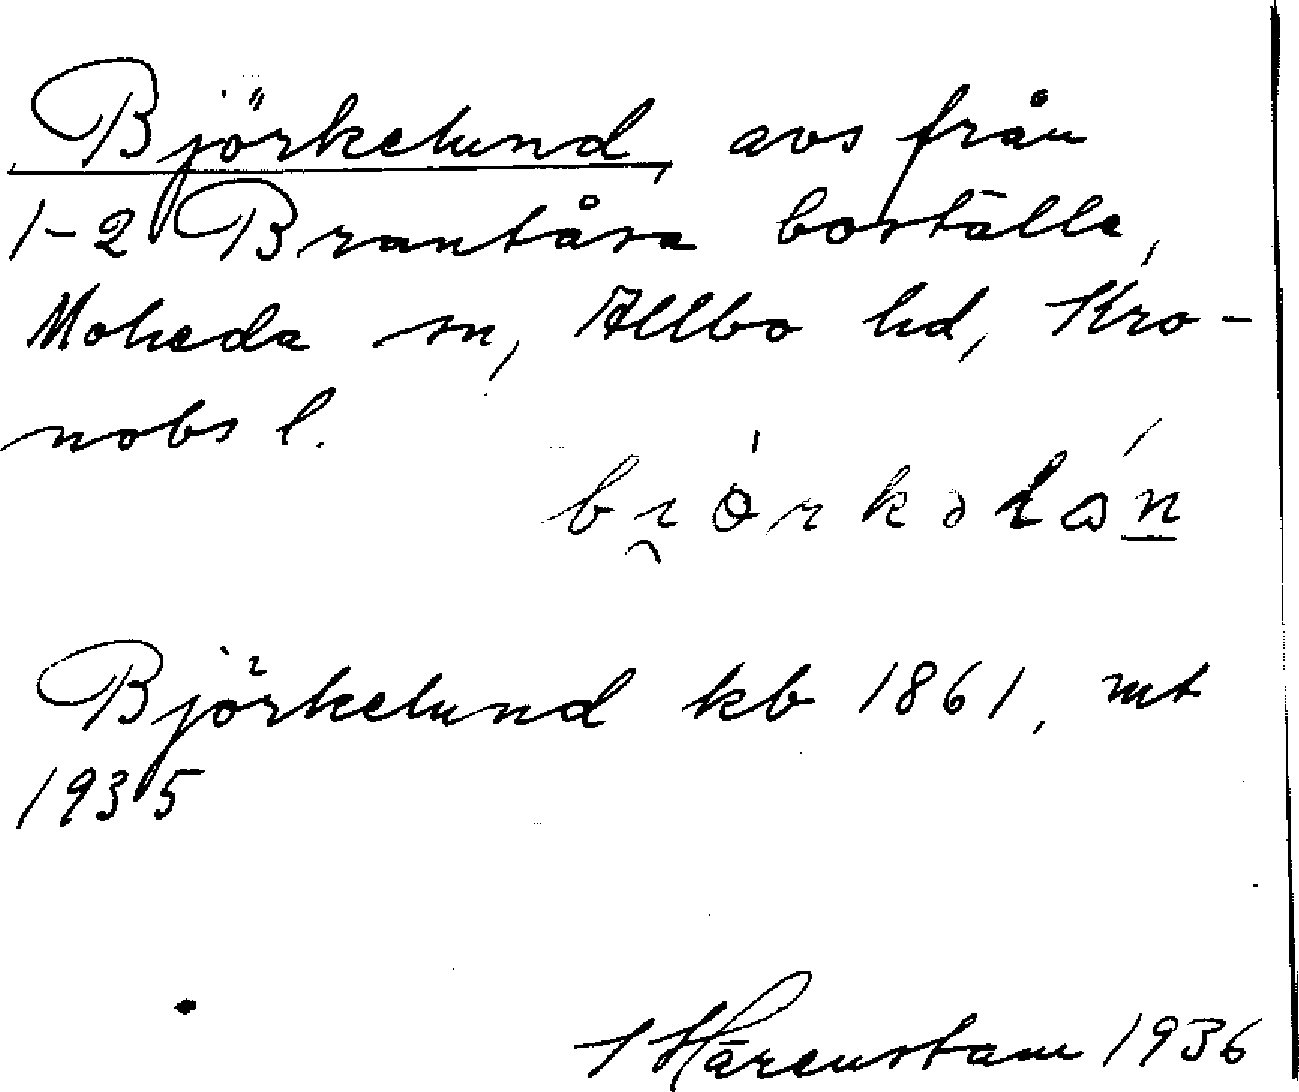 Björkelund, avs från
1-2 Brantåsa boställe,
Moheda sn, Allbo hd, Kro-
nobs l.
bi̯ò́rkəlɷ́n̲
Björkelund kb 1861, mt
1935
Härenstam 1936